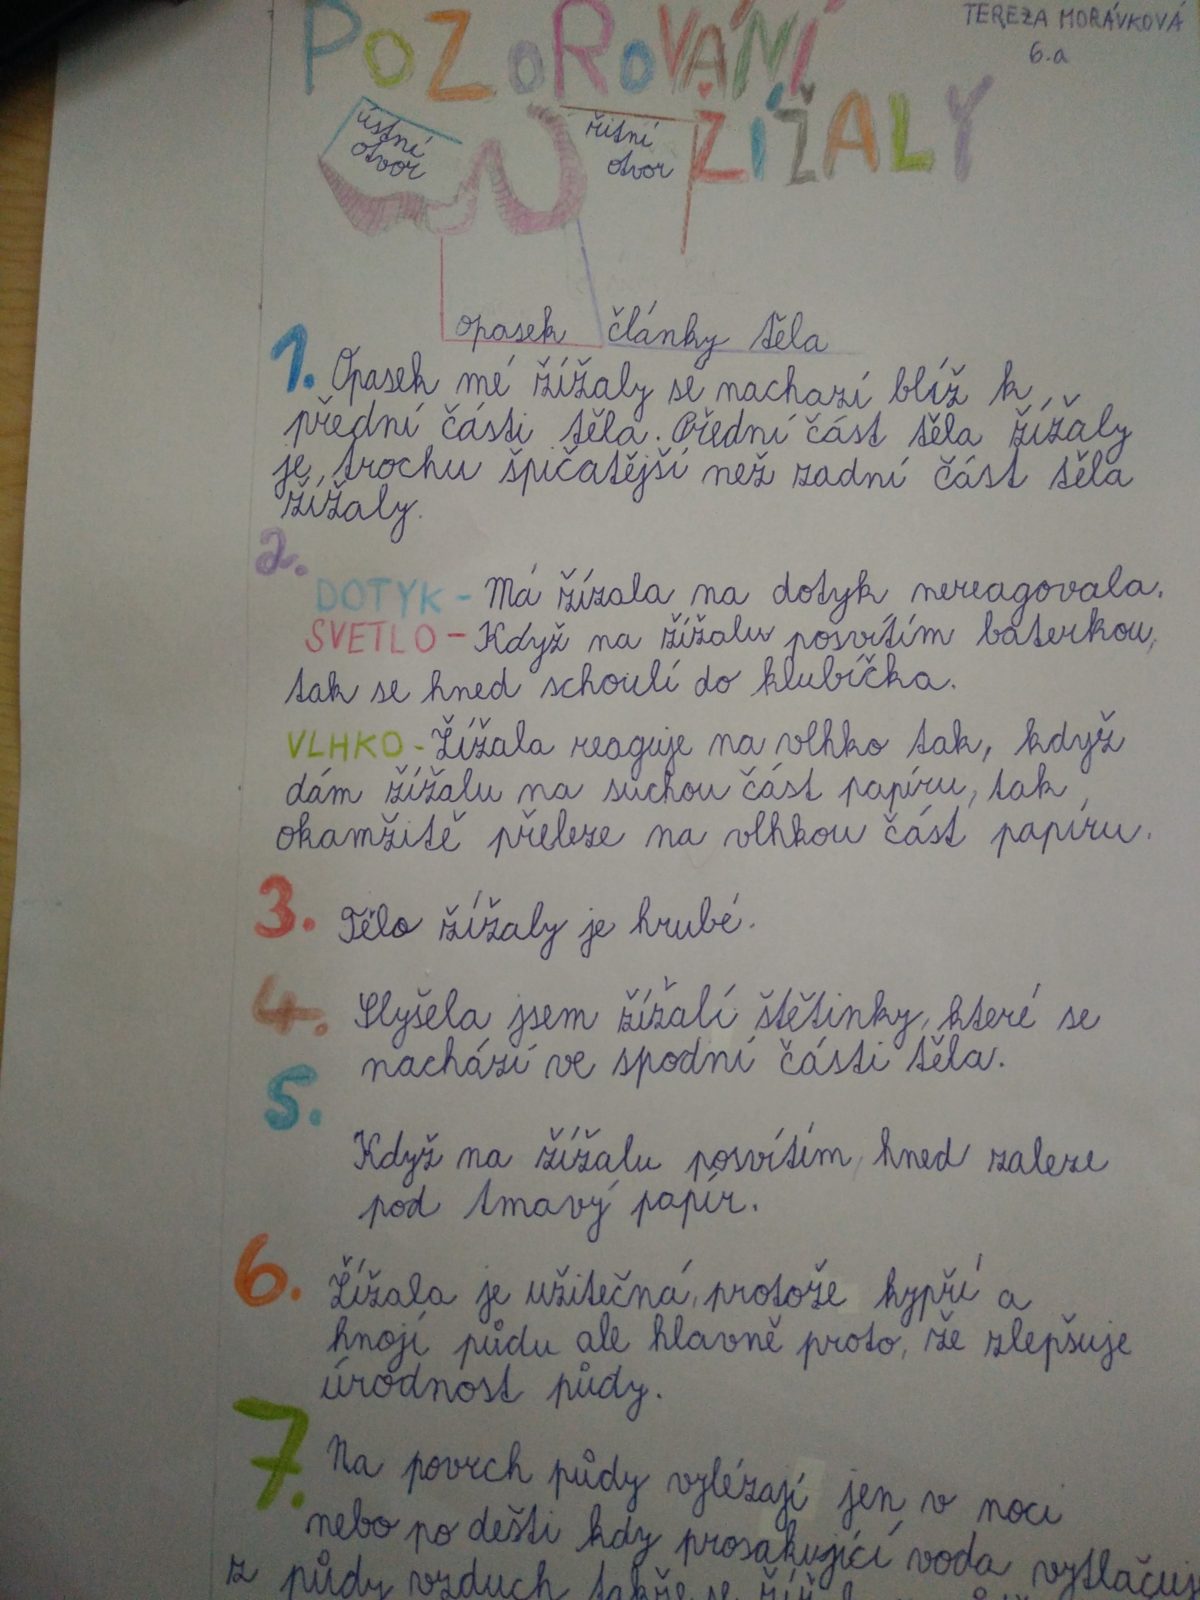 POZOROVÁNÍ
TEREZA MORÁVKOVÁ
6.a
ŽÍŽALY
ústní
otvor
řitní
otvor
opasek články těla
1. Opasek mé žížaly se nachazí blíž k
přední části těla. Přední část těla žížaly
je trochu špičatější než zadní část těla
žížaly.
2.
DOTYK - Má žízala na dotyk nereagovala.
SVETLO - Když na žížalu posvítím baterkou,
tak se hned schoulí do klubíčka.
VLHKO - Žížala reaguje na vlhko tak, když
dám žížalu na suchou část papíru, tak
okamžitě přeleze na vlhkou část papíru.
3. Tělo žížaly je hrubé.
4. Slyšela jsem žížalí štětinky, které se
nachází ve spodní části těla.
5.
Když na žížalu posvítím, hned zaleze
pod tmavý papír.
6. Žížala je užitečná, protože kypří a
hnojí půdu ale hlavně proto, že zlepšuje
úrodnost půdy.
7. Na povrch půdy vylézají jen v noci
nebo po dešti kdy prosakující voda vytlačuj
z půdy vzduch takže se